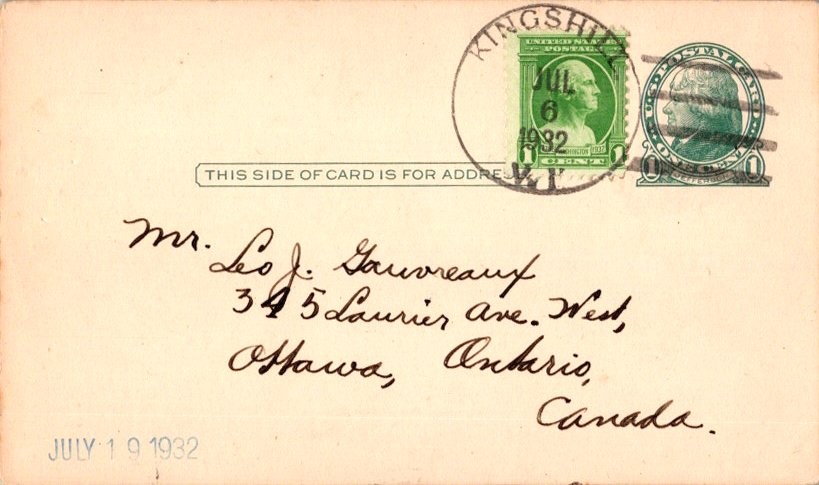 KINGSHILL
JUL
6
1932
V.I.
UNITED STATES
POSTAGE
WASHINGTON
1 CENT 1
U.S. POSTAL CARD
ONE CENT
1 JEFFERSON 1
THIS SIDE OF CARD IS FOR ADDRE
Mr.
Leo J. Gauvreaux
345 Laurier Ave. West,
Ottawa, Ontario,
Canada.
JULY 19 1932